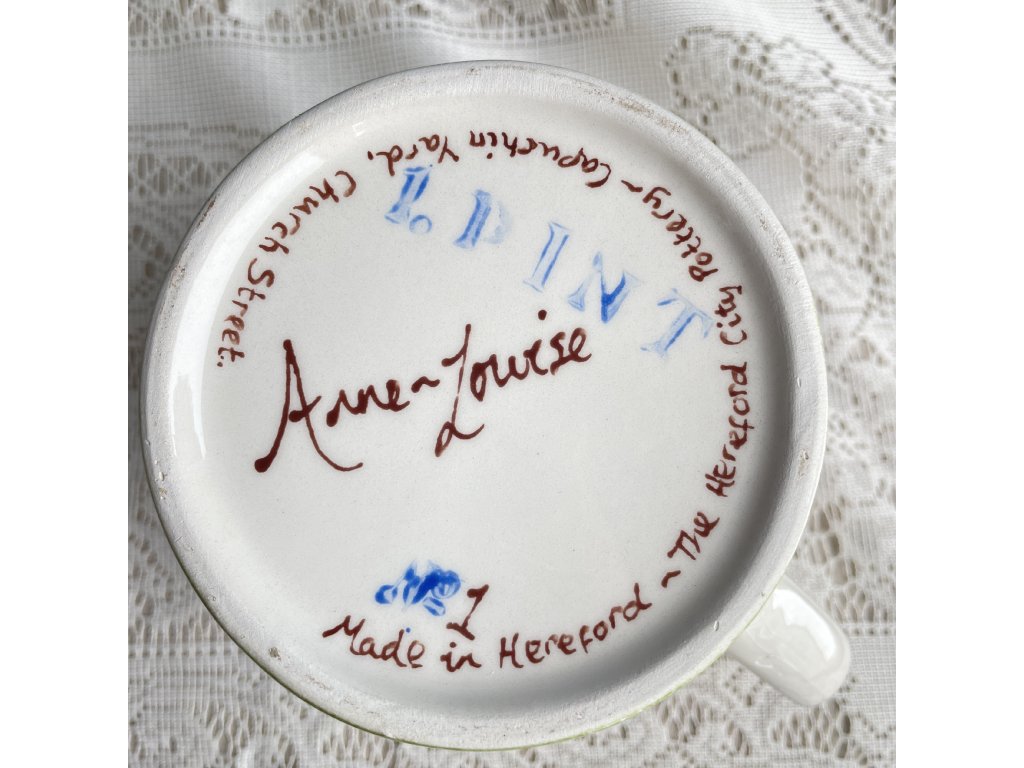 Made in Hereford ~ The Hereford City Pottery ~ Capuchin Yard, Church Street.
1. PINT
Anne~Louise